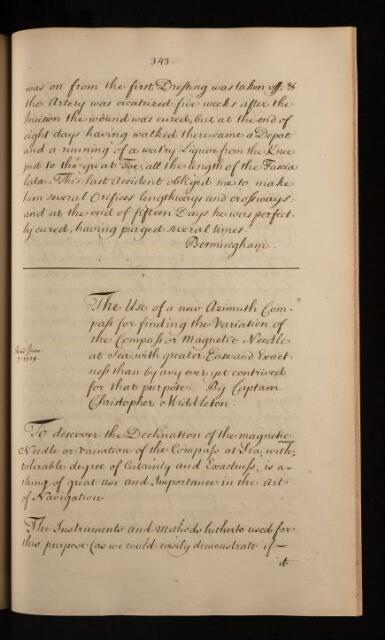 343.
was on from the first Dressing was taken off: &
the Artery was cicatrized five weeks after the
Incision the wound was cured, but at the end of
eight days having walked there came a Depot
and a running of a watry Liquor from the Knee
just to the great Toe, all the length of the Fascia
lata. This last Accident obliged me to make
him several Orefices lengthways and crossways:
and at the end of fifteen Days he was perfect-
ly cured, having purged several times.
Bermingham.
The Use of a new Azimuth Com-
pass for finding the Variation of
the Compass or Magnetic Needle
at Sea, with greater Ease and Exact-
ness than by any ever yet contrived
for that purpose. By Captain
Christopher Middleton.
To discover the Declination of the magnetic
Needle or Variation of the Compass at Sea, with
tolerable degree of Certainty and Exactness, is a-
thing of great Use and Importance in the Art
of Navigation
The Instruments and Methods hitherto used for
this purpose (as we could easily demonstrate if
it